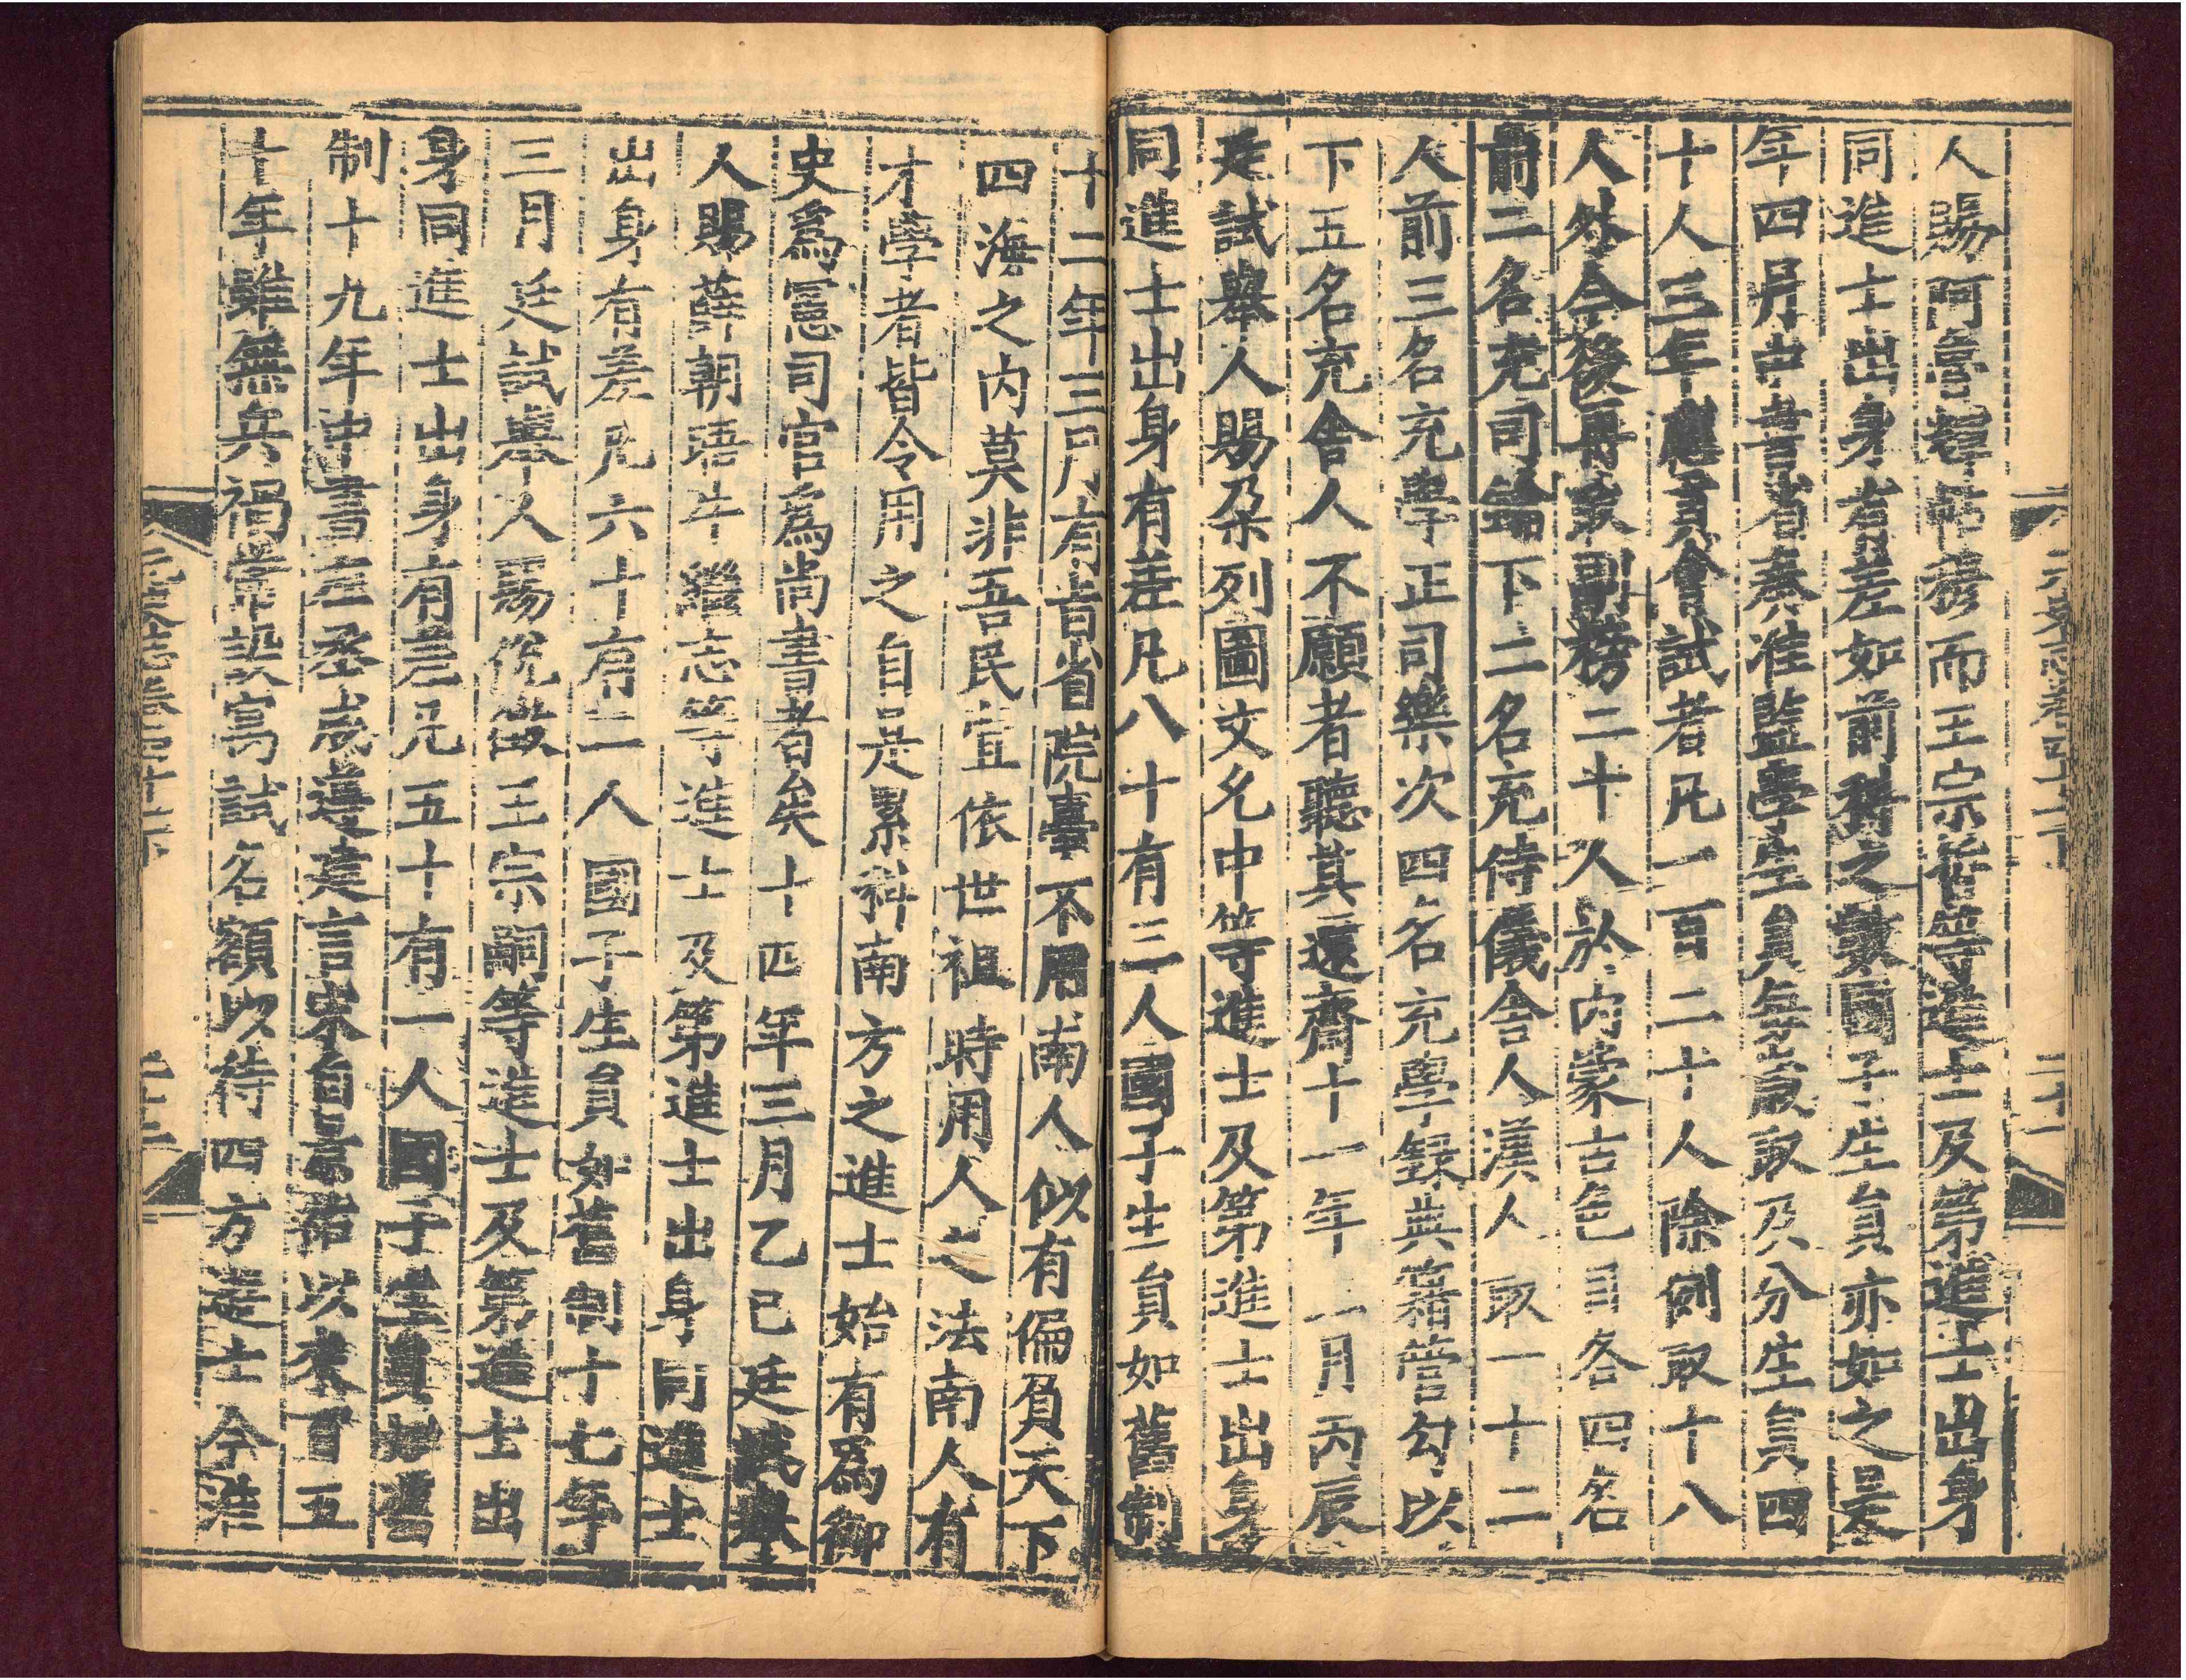 人賜阿魯輝帖穆而王宗哲等進士及第進士出身
同進士出身有差如前科之數國子生員亦如之是
年四月中書省奏准監學生員每歲取及分生員四
十人三年應貢會試者凡一百二十人除例取十八
人外今後再取副榜二十人於內蒙古色目各四名
前二名充司鑰下二名充侍儀舍人漢人取一十二
人前三名充學正司樂次四名充學錄典籍管勾以
下五名充舍人不願者聽其還齋十一年一月丙辰
廷試舉人賜朶列圖文允中等進士及第進士出身
同進士出身有差凡八十有三人國子生員如舊制
十二年三月有旨省院臺不用南人似有偏負天下
四海之內莫非吾民宜依世祖時用人之法南人有
才學者皆令用之自是累科南方之進士始有為御
史為憲司官為尚書者矣十四年三月乙巳廷試舉
人賜薛朝晤牛繼志等進士及第進士出身同進士
出身有差凡六十有二人國子生員如舊制十七年
三月廷試舉人賜侻徵王宗嗣等進士及第進士出
身同進士出身有差凡五十有一人國子生員如舊
制十九年中書左丞成遵建言宋自景祐以來百五
十年雖無兵禍常設寓試名額以待四方進士今淮